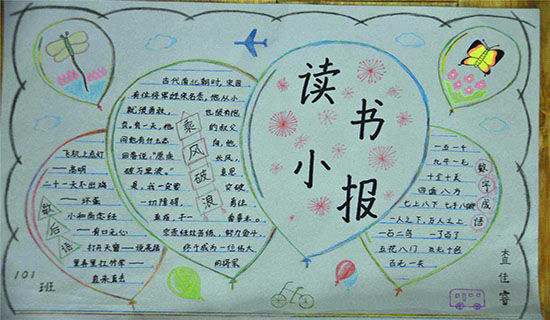 读书小报
古代南北朝时，宋国
有位将军姓宗名悫，他从小
就很勇敢，也很有抱
负。有一天，他的叔父
问他有什么志向，他
回答说："愿乘长风，
破万里浪。"意思
是，我一定要突破
一切障碍，勇往
直前，干一
宗悫经过苦练，努力奋斗，
终于成为一位伟大
的将军
乘风破浪
飞机上点灯
——高明
二十一天不出鸡
——坏蛋
小和尚念经
——有口无心
打开天窗——说亮话
里弄里拉竹竿——
直来直去
歇后语
一五一十
九牛一毛
十全十美
四面八方
七上八下 七手八脚
一人之下，万人之上
一石二鸟 一了百了
五花八门 五光十色
百无一失
数字成语
101
班
查佳睿